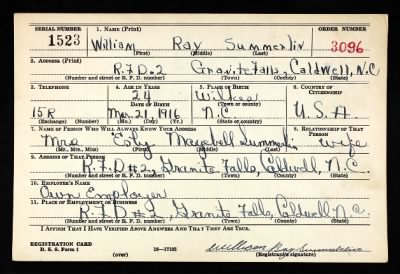 SERIAL NUMBER 1. NAME (Print) ORDER NUMBER
1523 William Ray Summerlin 3096
(First) (Middle) (Last)
2. ADDRESS (Print)
R.F.D. 2 Granite Falls, Caldwell, N.C
(Number and street or R. F. D. number) (Town) (County) (State)
3. TELEPHONE 4. AGE IN YEARS 5. PLACE OF BIRTH 6. COUNTRY OF CITIZENSHIP
24 Wilkes
DATE OF BIRTH (Town or county)
15R Mar. 21 1916 N.C. U.S.A.
(Exchange) (Number) (Mo.) (Day) (Yr.) (State or country)
7. NAME OF PERSON WHO WILL ALWAYS KNOW YOUR ADDRESS 8. RELATIONSHIP OF THAT PERSON
Mrs. Maybell Summerlin wife
(Mr., Mrs., Miss) (First) (Middle) (Last)
9. ADDRESS OF THAT PERSON
R.F.D #2, Granite Falls, Caldwell, N.C.
(Number and street or R. F. D. number) (Town) (County) (State)
10. EMPLOYER'S NAME
Own Employer
11. PLACE OF EMPLOYMENT OR BUSINESS
R.F.D #2, Granite Falls, Caldwell N.C.
(Number and street or R. F. D. number) (Town) (County) (State)
I AFFIRM THAT I HAVE VERIFIED ABOVE ANSWERS AND THAT THEY ARE TRUE.
REGISTRATION CARD
D. S. S. Form 1 16—17105 William Ray Summerlin
(over) (Registrant's signature)